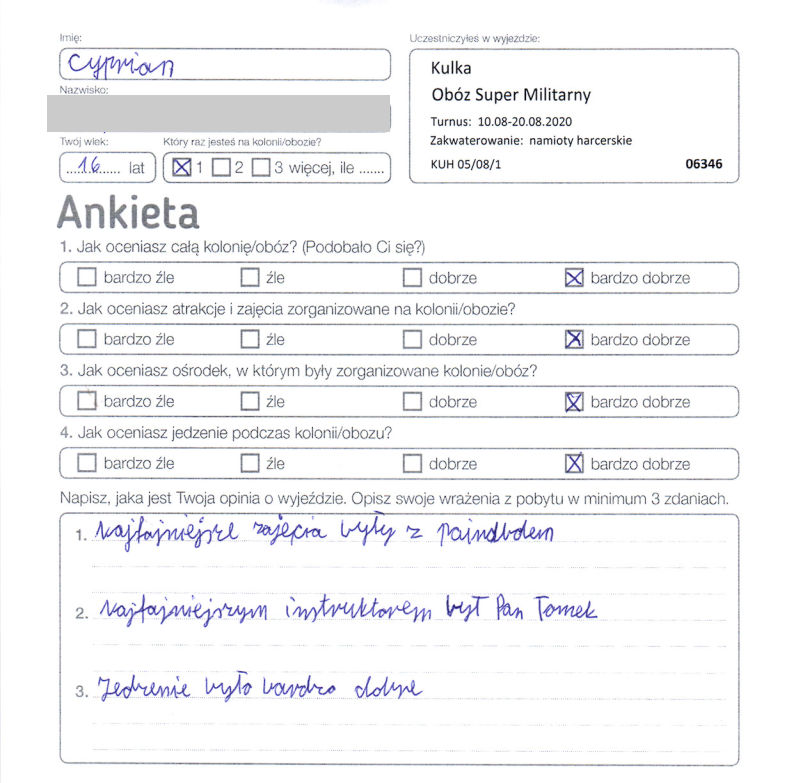 Imię:
Cyprian
Nazwisko:
Twój wiek:
Który raz jesteś na kolonii/obozie?
....16...... lat
1 2 3 więcej, ile .......
Uczestniczyłeś w wyjeździe:
Kulka
Obóz Super Militarny
Turnus: 10.08-20.08.2020
Zakwaterowanie: namioty harcerskie
KUH 05/08/1 06346
Ankieta
1. Jak oceniasz całą kolonię/obóz? (Podobało Ci się?)
bardzo źle źle dobrze bardzo dobrze
2. Jak oceniasz atrakcje i zajęcia zorganizowane na kolonii/obozie?
bardzo źle źle dobrze bardzo dobrze
3. Jak oceniasz ośrodek, w którym były zorganizowane kolonie/obóz?
bardzo źle źle dobrze bardzo dobrze
4. Jak oceniasz jedzenie podczas kolonii/obozu?
bardzo źle źle dobrze bardzo dobrze
Napisz, jaka jest Twoja opinia o wyjeździe. Opisz swoje wrażenia z pobytu w minimum 3 zdaniach.
1. Najfajniejsze zajęcia były z paindbolem
2. Najfajniejszym instruktorem był Pan Tomek
3. Jedzenie było bardzo dobre